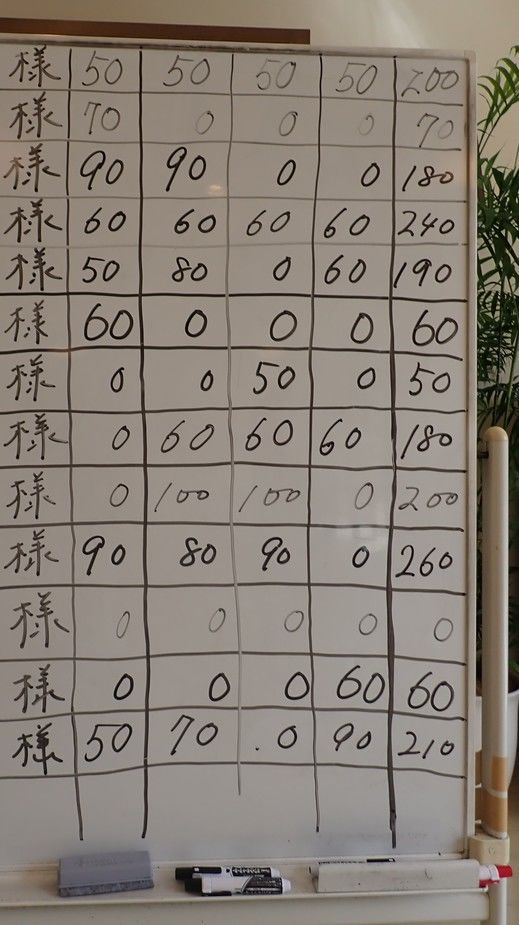 様 50 50 50 50 200
様 70 0 0 0 70
様 90 90 0 0 180
様 60 60 60 60 240
様 50 80 0 60 190
様 60 0 0 0 60
様 0 0 50 0 50
様 0 60 60 60 180
様 0 100 100 0 200
様 90 80 90 0 260
様 0 0 0 0 0
様 0 0 0 60 60
様 50 70 .0 90 210